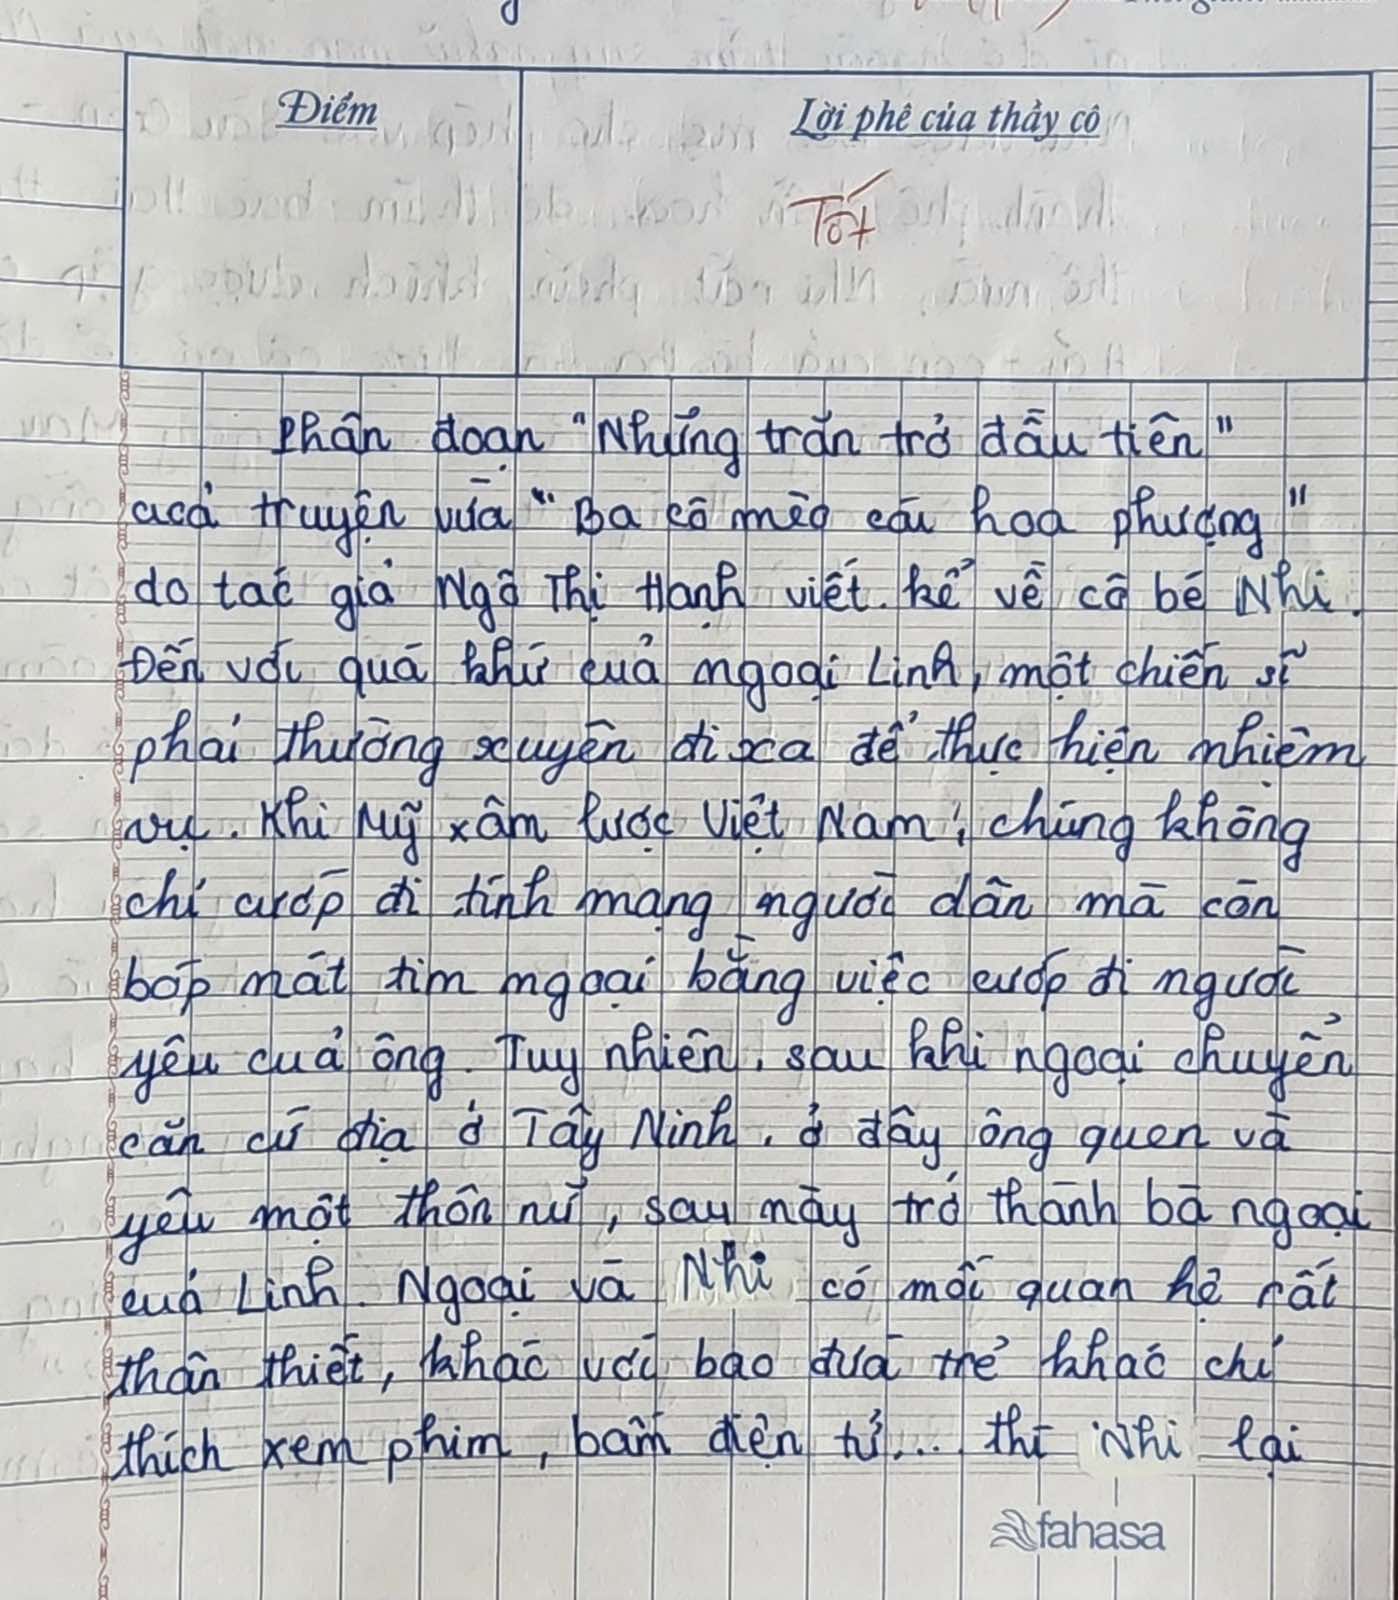 Điểm
Lời phê của thầy cô
Tốt
Phân đoạn "Những trăn trở đầu tiên"
của truyện vừa "Ba cô mèo câu hoa phượng"
do tác giả Ngô Thị Hạnh viết. kể về cô bé Nhi.
Đến với quá khứ của ngoại Linh, một chiến sĩ
phải thường xuyên đi xa để thực hiện nhiệm
vụ. Khi Mỹ xâm lược Việt Nam, chúng không
chỉ cướp đi tính mạng người dân mà còn
bóp mát tim ngoại bằng việc cướp đi người
yêu của ông. Tuy nhiên, sau khi ngoại chuyển
căn cứ địa ở Tây Ninh, ở đây ông quen và
yêu một thôn nữ, sau này trở thành bà ngoại
của Linh. Ngoại và Nhi có mối quan hệ rất
thân thiết, khác với bao đứa trẻ khác chỉ
thích xem phim, bấm điện tử... thì Nhi lại
fahasa